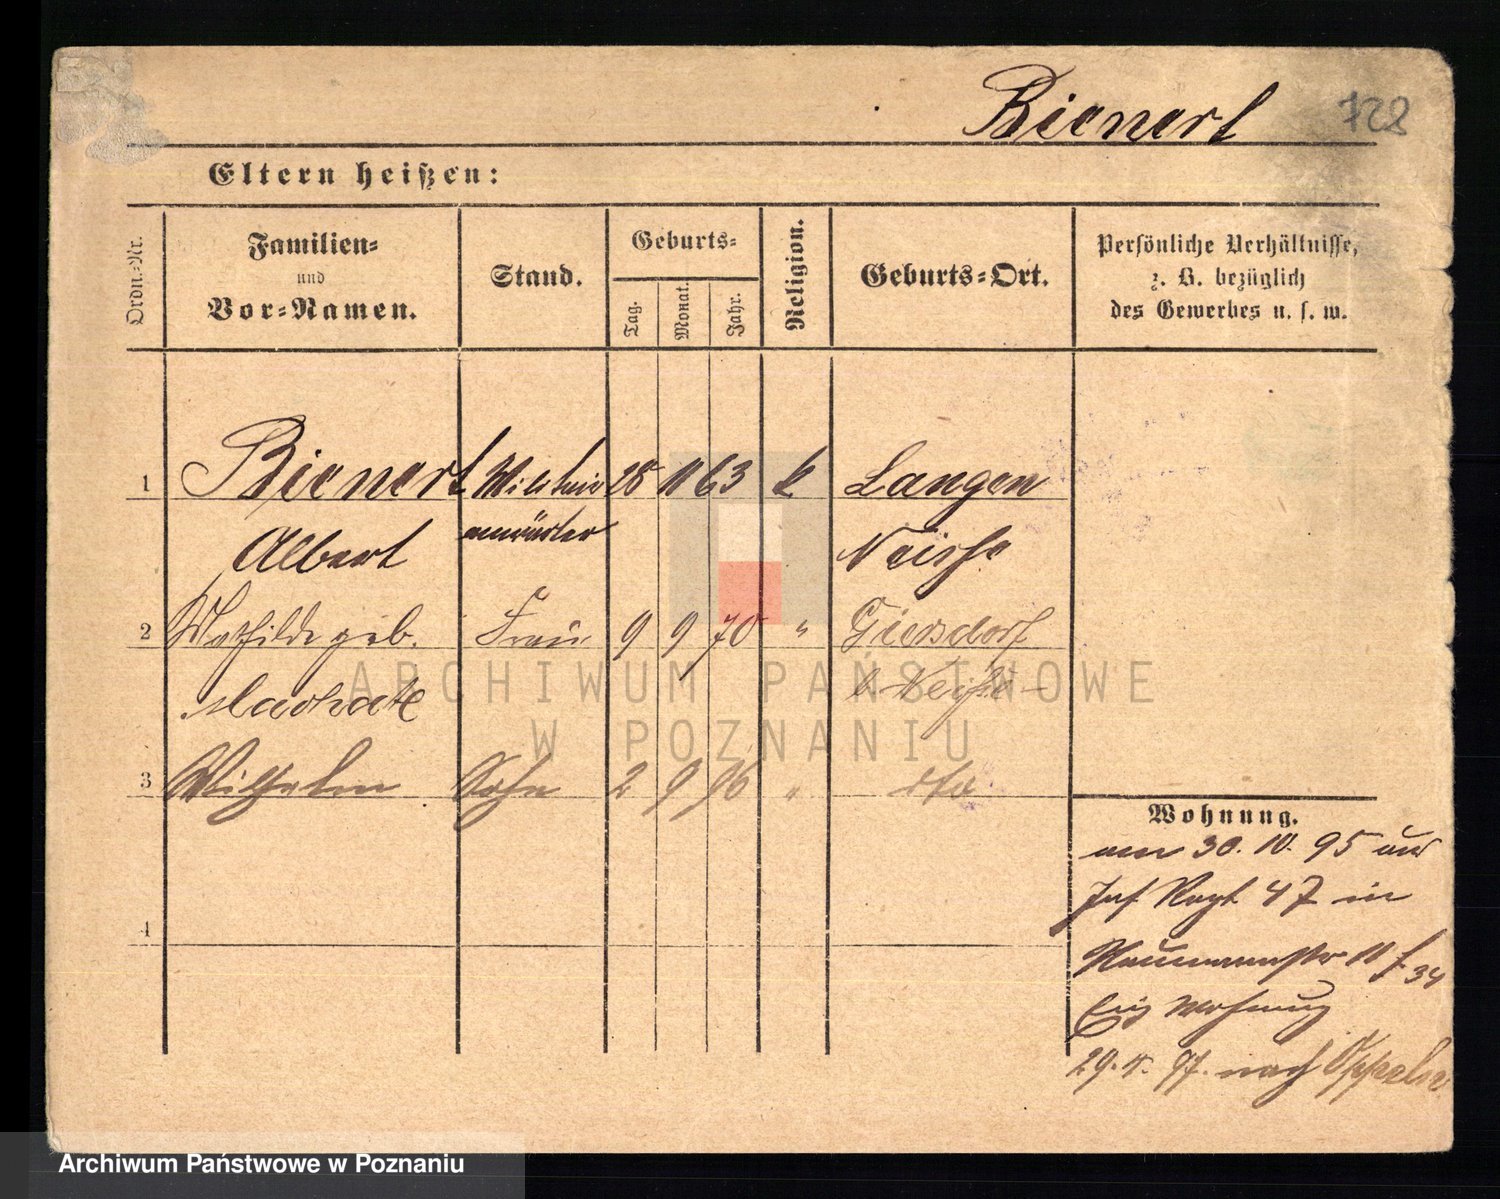 Bienert 728
Eltern heißen:
Ordn.-Nr.
Familien-
und
Vor-Namen.
Stand.
Geburts-
Tag.
Monat.
Jahr.
Religion.
Geburts-Ort.
Persönliche Verhältnisse,
z. B. bezüglich
des Gewerbes u. s. w.
1 Bienert Militair 28 11 63 k Langen
Albert anwärter Neisse
2 Mathilde geb. Frau 9 9 70 " Giersdorf
b Neisse
3 Wilhelm Sohn 2 9 96 " dto
4
Wohnung.
am 30. 10. 95 aus
Inf Regt 47 in
Naumannstr 11 f. 34
Eig Wohnung
29. 97. nach Oppeln
ARCHIWUM PAŃSTWOWE
W POZNANIU
Archiwum Państwowe w Poznaniu